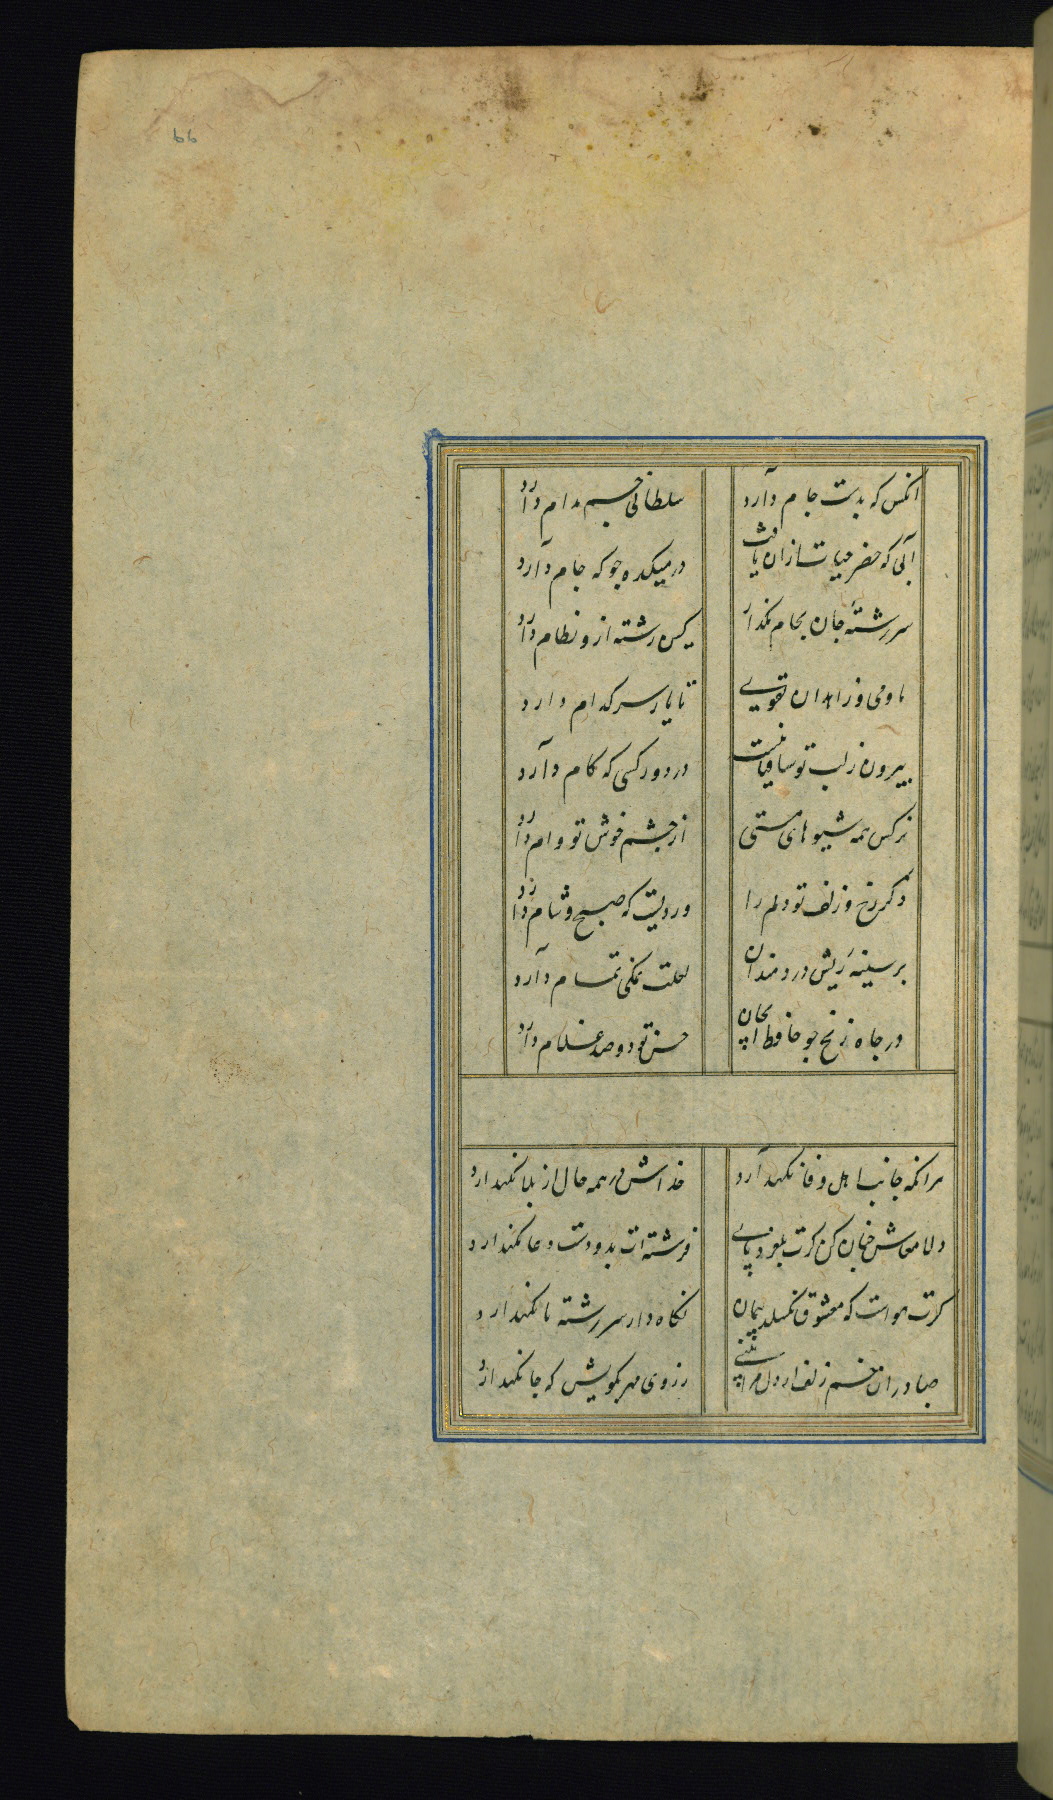 ۶۶
انکس که بدست جام دارد سلطانی جم مدام دارد
آبی که خضر حیات ازان یافت در میکده جو که جام دارد
سررشتهٔ جان بجام بگذار کین رشته ازو نظام دارد
ما و می و زاهدان تقوی تا یار سر کدام دارد
بیرون ز لب تو ساقیا نیست در دور کسی که کام دارد
نرکس همه شیوهای مستی از چشم خوش تو وام دارد
ذکر رخ و زلف تو دلم را وردیست که صبح و شام دارد
بر سینهٔ ریش دردمندان لعلت نمکی تمام دارد
در جاه زنخ جو حافظ ای جان حسن تو دو صد غلام دارد
هرانکه جانب اهل وفا نکهدارد خداش در همه حال از بلا نکهدارد
دلا معاش جنان کن کرت بلغزد پای فرشته ات بدو دست دعا نکهدارد
کرت هواست که معشوق نکسلد پیمان نکاه دار سر رشته تا نکهدارد
صبا دران خم زلف ار دل مرا بینی ز روی مهر بکویش که جا نکهدارد